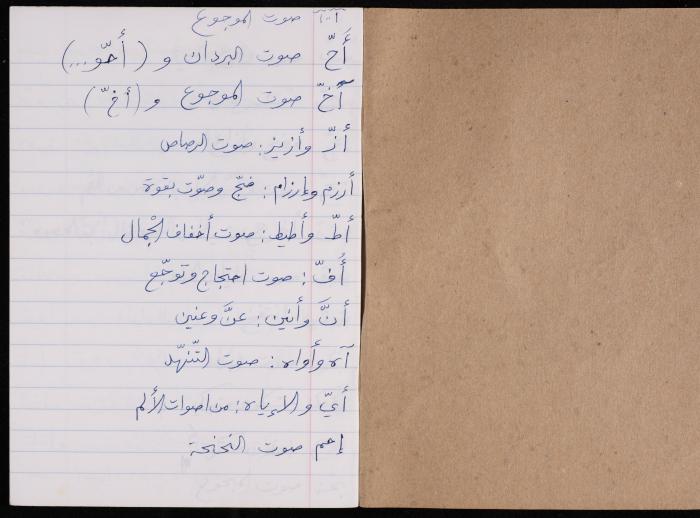 صوت الموجوع
أَحّ صوت البردان و (أحّو...)
آخّ صوت الموجوع و (أخّ)
أزّ وأزيز: صوت الرصاص
أرزم وإرزام: ضجّ وصوّت بقوة
أطّ وأطيط: صوت أخفاف الجْمال
أُفّ: صوت احتجاج وتوجّع
أنَّ وأنين: عنَّ وعنين
آه وأواه: صوت التّنهّد
أيّ والإياه: من اصوات الألم
إحم صوت النحنحة